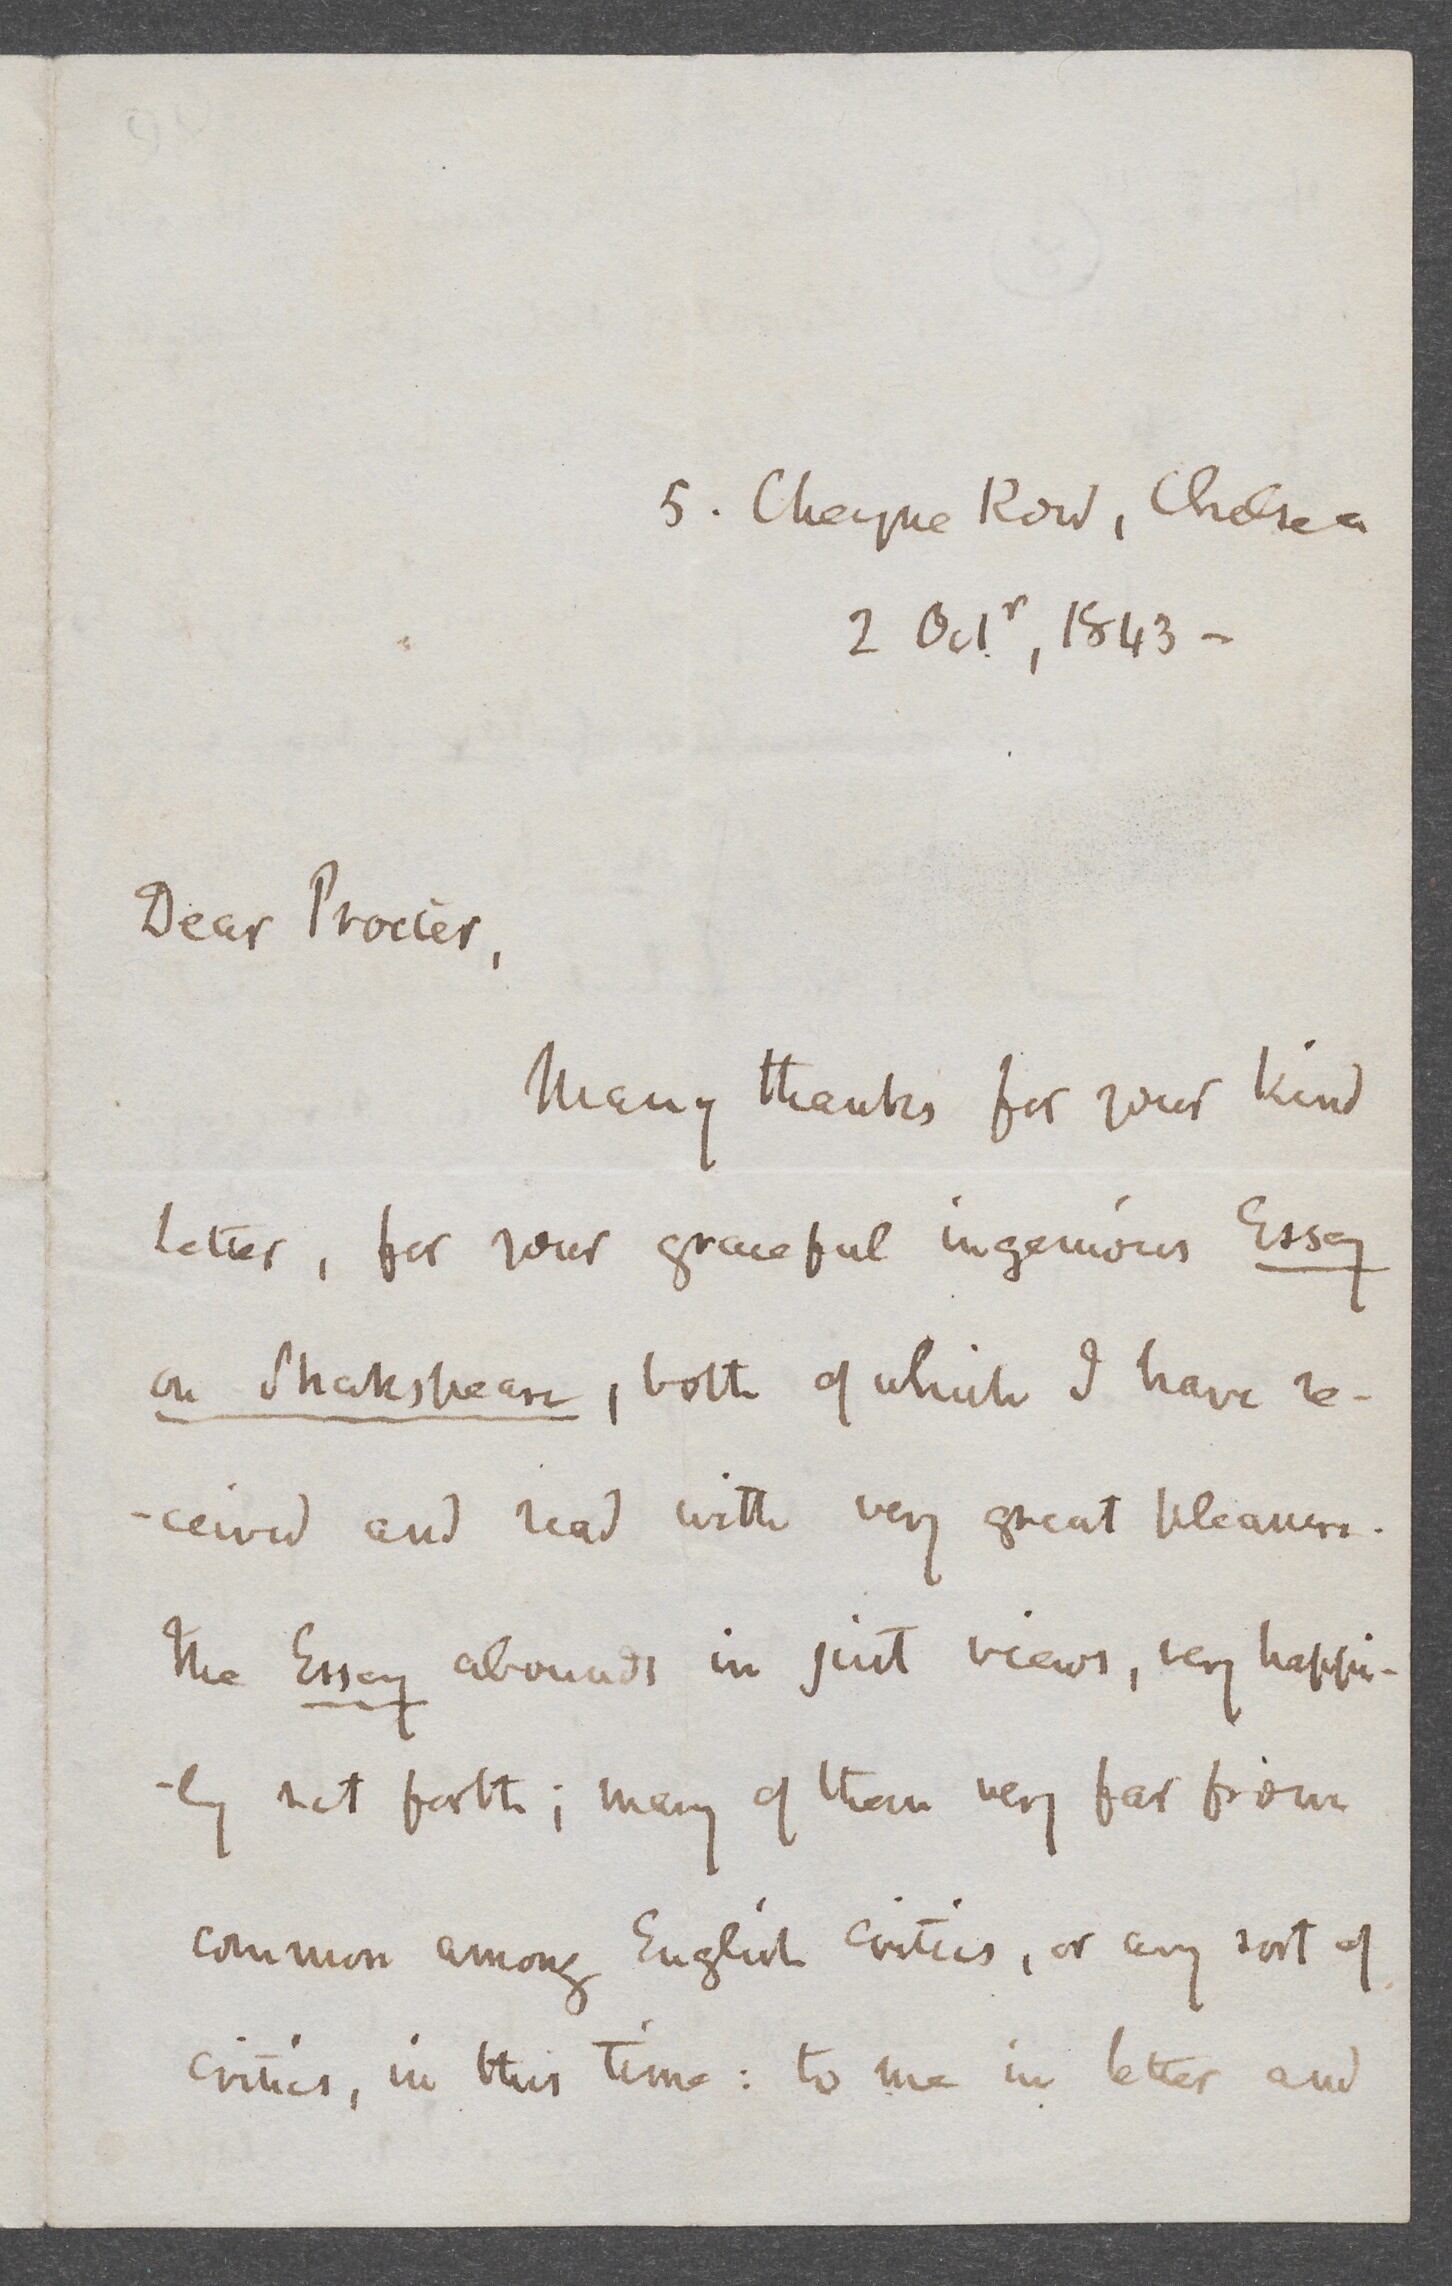 5. Cheyne Row, Chelsea
2 Octr, 1843 –
Dear Procter,
Many thanks for your kind
letter, for your graceful ingenious Essay
on Shakspeare, both of which I have re-
-ceived and read with very great pleasure.
The Essay abounds in just views, very happi-
-ly set forth; many of them very far from
common among English critics, or any sort of
critics, in this time: to me in letter and